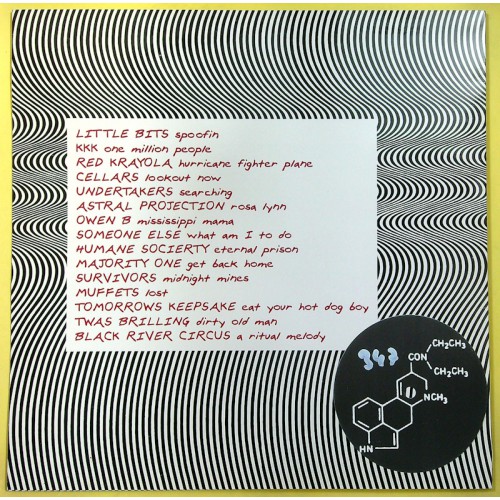 LITTLE BITS spoofin
KKK one million people
RED KRAYOLA hurricane fighter plane
CELLARS lookout now
UNDERTAKERS searching
ASTRAL PROJECTION rosa lynn
OWEN B mississippi mama
SOMEONE ELSE what am I to do
HUMANE SOCIERTY eternal prison
MAJORITY ONE get back home
SURVIVORS midnight mines
MUFFETS lost
TOMORROWS KEEPSAKE eat your hot dog boy
TWAS BRILLING dirty old man
BLACK RIVER CIRCUS a ritual melody
347
CH₂CH₃
CON
CH₂CH₃
NCH₃
HN